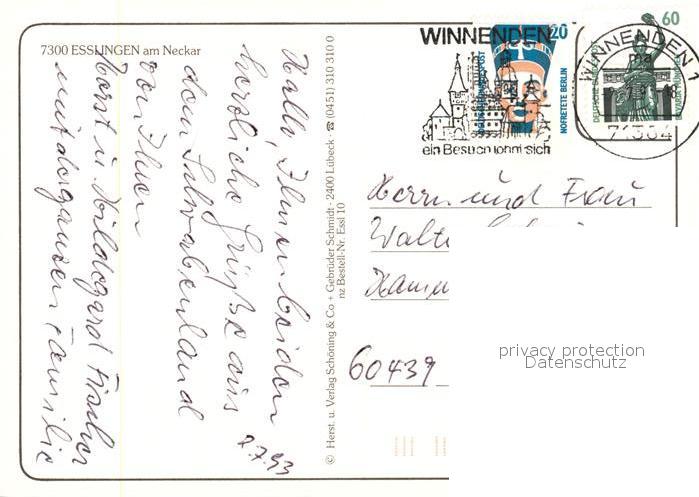 7300 ESSLINGEN am Neckar
Hallo, Ihnen beiden
herzliche Grüße aus
dem Schwabenland
von Ihren
Horst u. Hildegard Fischer
mit der ganzen Familie
2.7.93
© Herst. u. Verlag Schöning & Co + Gebrüder Schmidt · 2400 Lübeck · ☎ (0451) 310 310 0
nz Bestell-Nr. Essl 10
WINNENDEN
ein Besuch lohnt sich
20
DEUTSCHE BUNDESPOST
NOFRETETE BERLIN
60
DEUTSCHE BUNDESPOST
BAVARIA MÜNCHEN
WINNENDEN 1
71364
Herrn und Frau
60439
privacy protection
Datenschutz